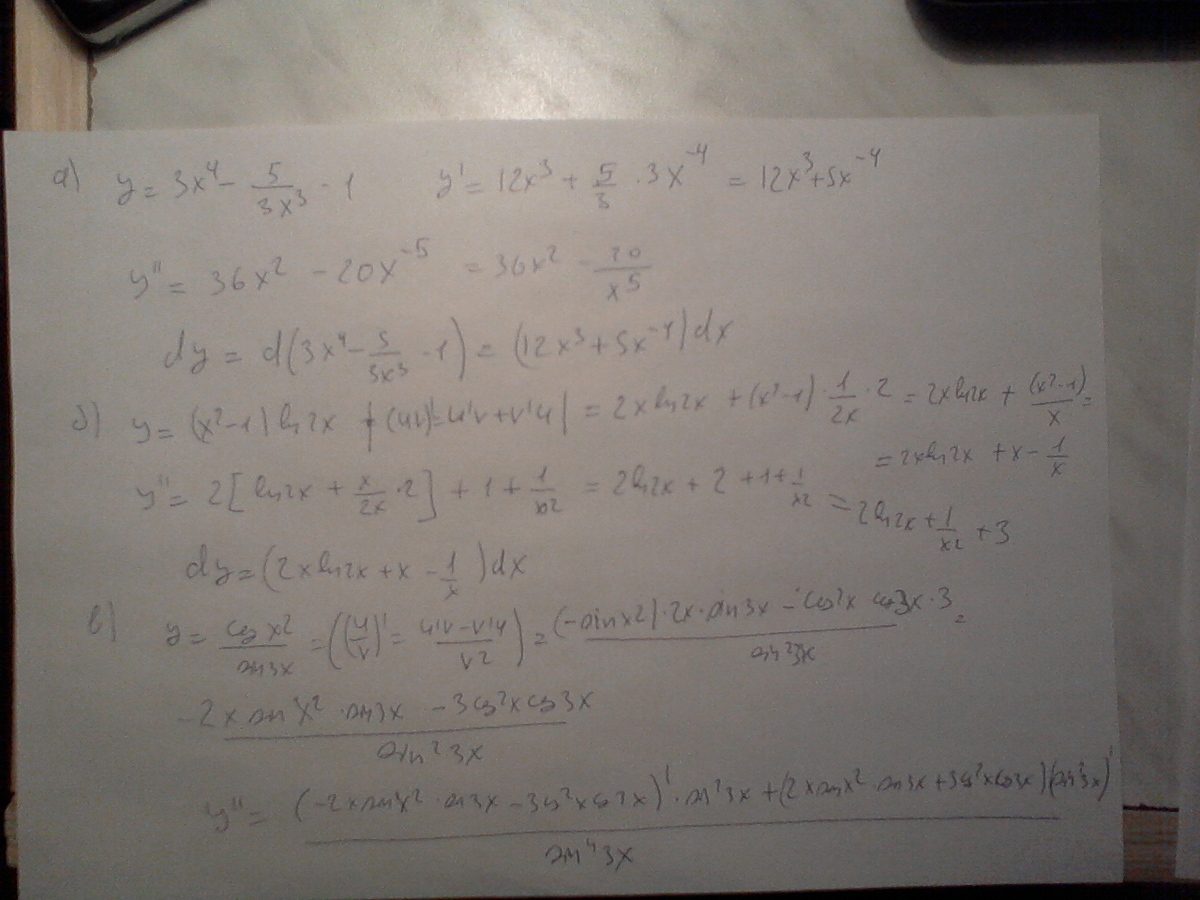 а) y = 3x⁴ - 5/(3x³) - 1 y' = 12x³ + 5/3 · 3x⁻⁴ = 12x³ + 5x⁻⁴
y'' = 36x² - 20x⁻⁵ = 36x² - 20/x⁵
dy = d(3x⁴ - 5/(3x³) - 1) = (12x³ + 5x⁻⁴)dx
б) y = (x²-1) ln2x |(uv)' = u'v + v'u| = 2x ln2x + (x²-1) · 1/(2x) · 2 = 2x ln2x + (x²-1)/x =
= 2x ln2x + x - 1/x
y'' = 2[ln2x + x/(2x) · 2] + 1 + 1/x² = 2ln2x + 2 + 1 + 1/x² = 2ln2x + 1/x² + 3
dy = (2x ln2x + x - 1/x)dx
в) y = cos x²/sin3x = ((u/v)' = (u'v - v'u)/v²) = ((-sin x2) · 2x · sin3x - cos²x cos3x · 3)/sin²3x =
(-2x sin x² · sin3x - 3cos²x cos3x)/sin²3x
y'' = ((-2x sin x² · sin3x - 3cos²x cos3x)' · sin²3x + (2x sin x² · sin3x + 3cos²x cos3x)(sin²3x)')/sin⁴3x